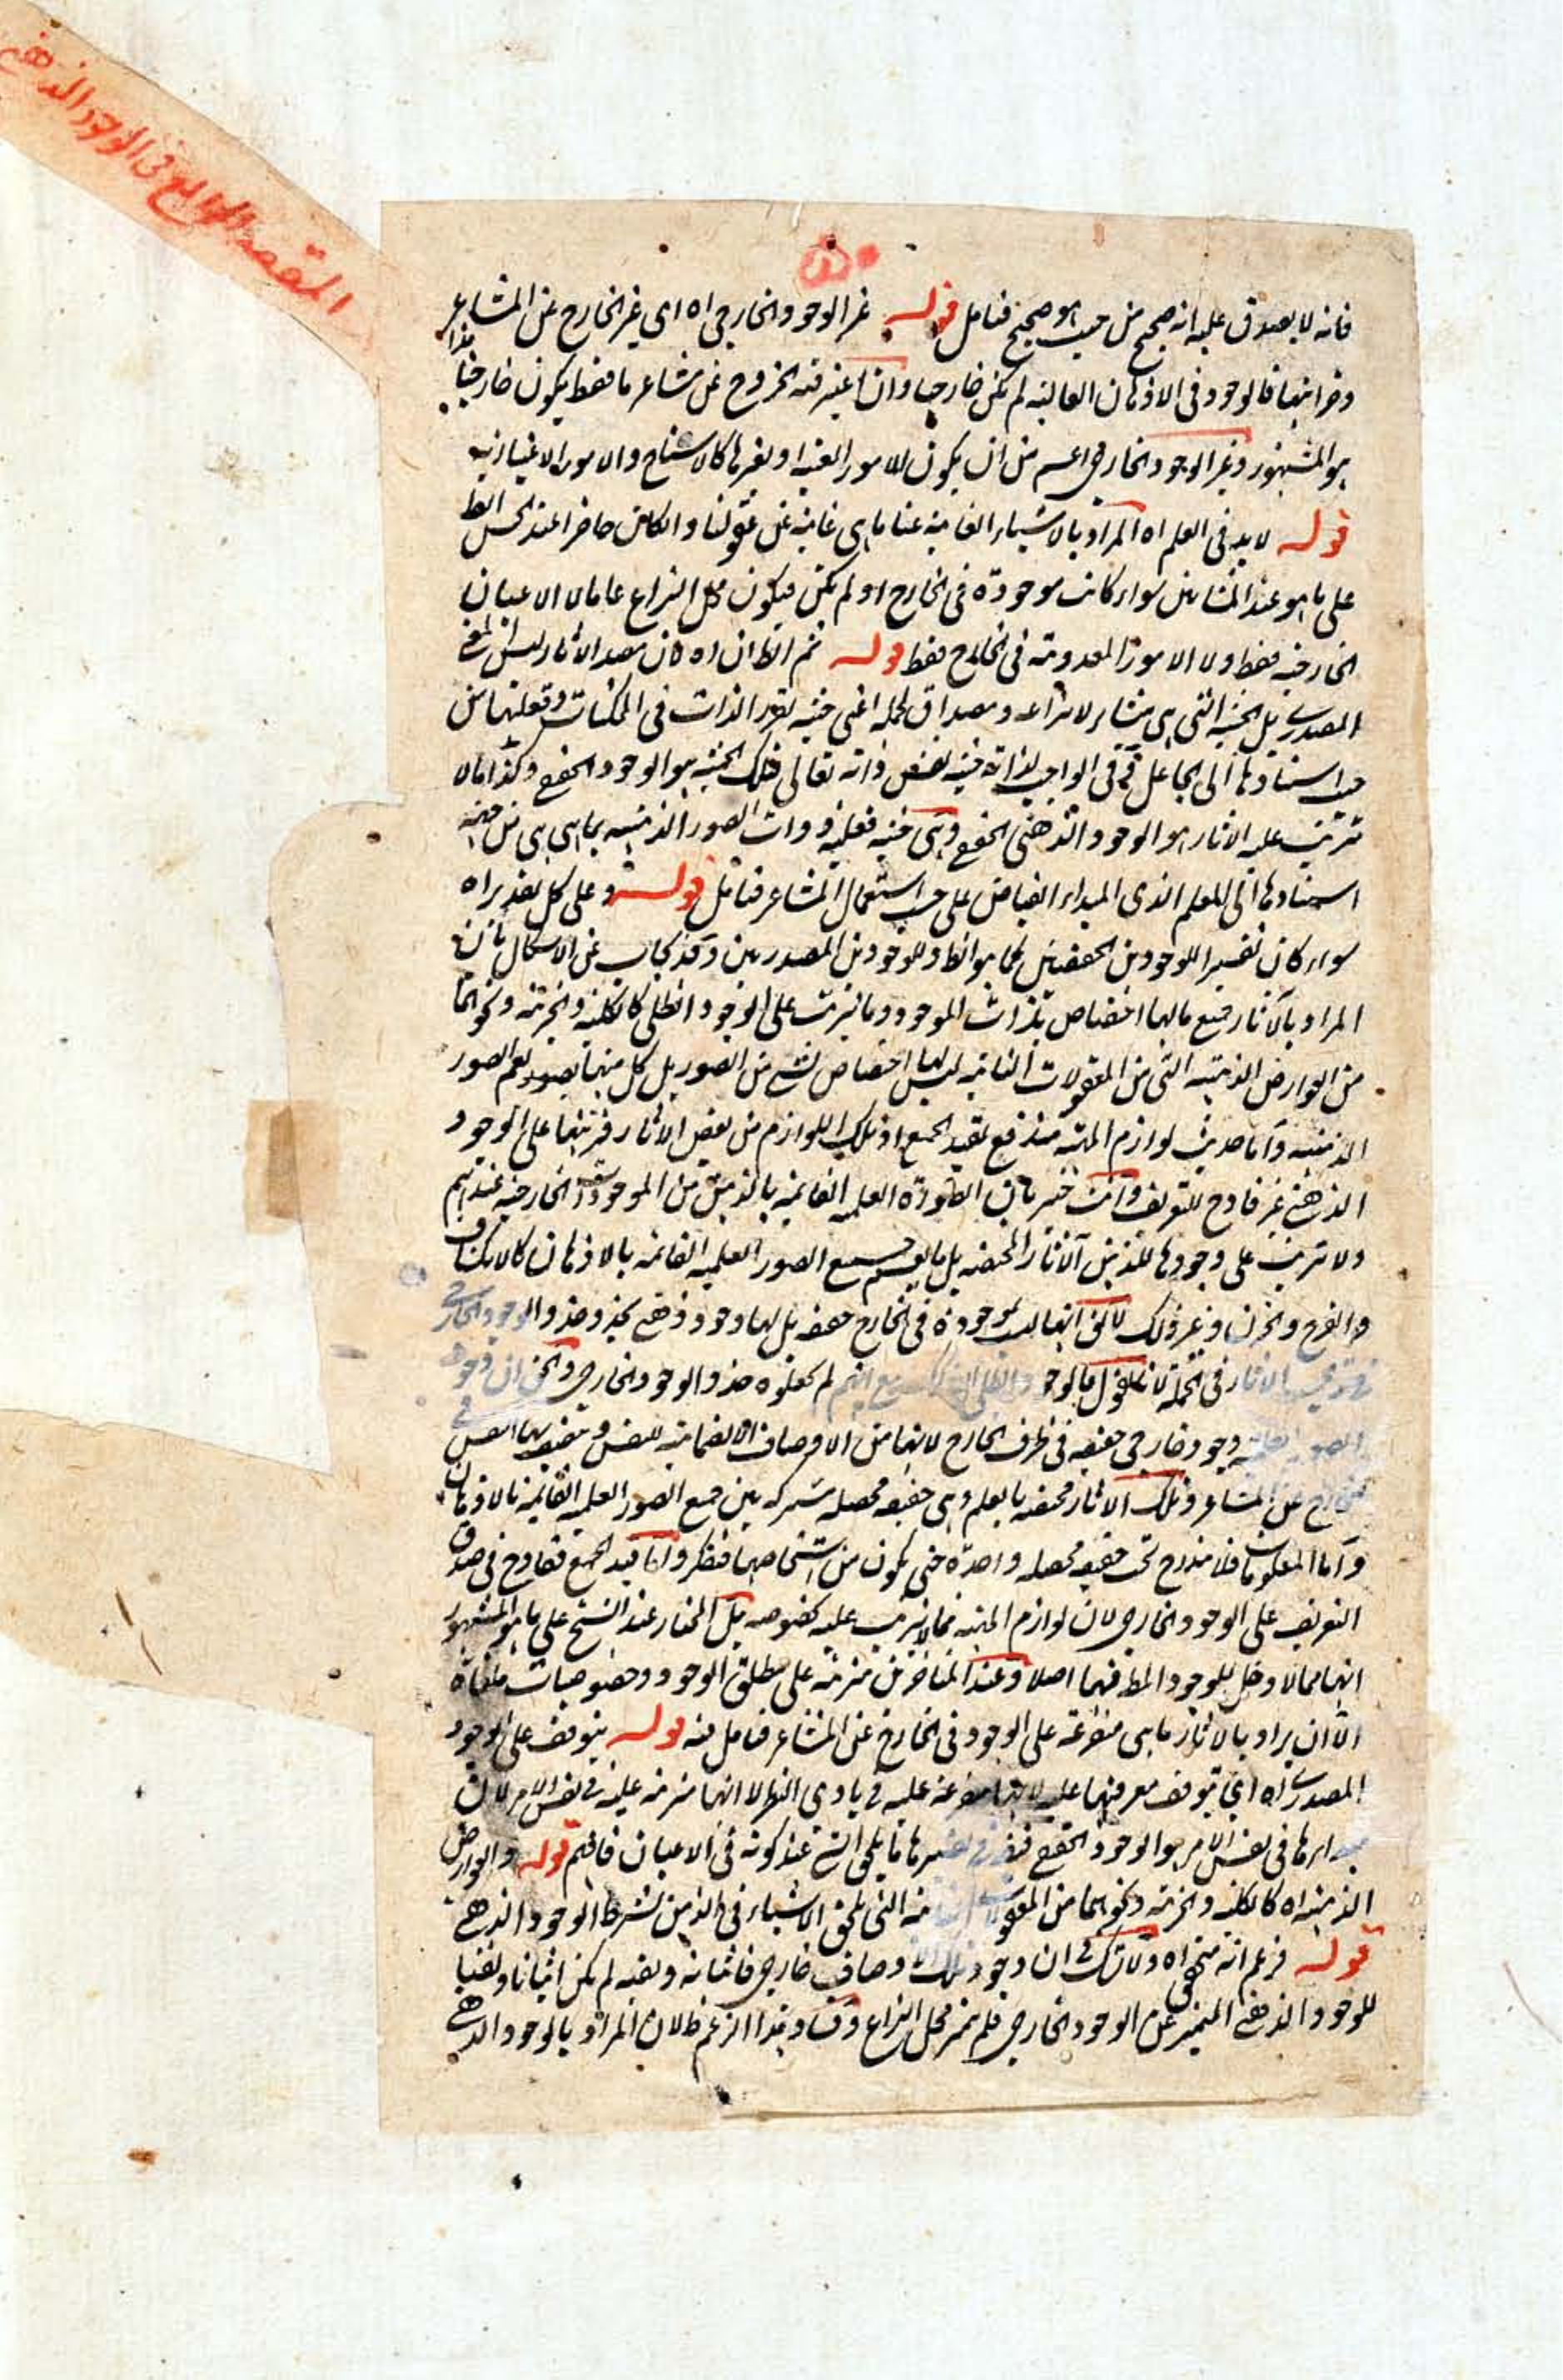 المقصد الرابع فى الوجود الذهنى
فانه لا يصدق عليه انه صحيح من حيث هو صحيح فتامل قوله غير الوجود الخارجى اه اى غير الخارج عن المشاعر
هذا
فالوجود فى الاذهان العالية لم يكن خارجيا وان اعتبر فيه الخروج عن مشاعر ما فقط يكون خارجيا
هو المشهور وغير الوجود الخارجى اعم من ان يكون للامور العينية او لغيرها كالاشباح والامور الاعتبارية
قوله لا بد فى العلم اه المراد بالاشياء الغائبة عنا ما هى غائبة عن عقولنا وان كان حاضرا عند الحس
على ما هو عند المشائين سواء كانت موجودة فى الخارج او لم يكن فيكون محل النزاع عاما لا الاعيان
الخارجية فقط ولا الامور المعدومة فى الخارج فقط قوله ثم الظ ان اه فان مصدر الاثار ليس المعنى
المصدرى بل الحيثية التى هى منشأ لانتزاعه ومصداق لحمله اعنى حيثية تقرر الذات فى الممكنات وفعليتها من
حيث استنادها الى الجاعل وفى الواجب لذاته حيثية نفس ذاته تعالى فتلك الحيثية هو الوجود الحقيقى وكذا ما لا
تترتب عليه الاثار هو الوجود الذهنى الحقيقى وهى حيثية فعلية ذوات الصور الذهنية بما هى هى من حيث
استنادها الى المعلم الذى المبداء الفياض على حسب استعمال المشاعر فتامل قوله وعلى كل تقدير اه
سواء كان تفسيرا للوجودين الحقيقيين كما هو الظ او للوجودين المصدريين وقد يجاب عن الاشكال بان
المراد بالاثار جميع ما لها اختصاص بذات الموجود وما يترتب على الوجود الظلى كالكلية والجزئية ونحوهما
من العوارض الذهنية التى من المعقولات الثانية ليس لها اختصاص بشئ من الصور بل كل منها يعم الصور
الذهنية واما حديث لوازم المهية فتدفع بقيد الجميع اذ تلك اللوازم من بعض الاثار فترتبها على الوجود
الذهنى غير قادح للتعريف وانت خبير بان الصورة العلمية القائمة بالذهن من الموجودات الخارجية عندهم
ولا تترتب على وجودها للذهن الاثار المختصة بل ما يعم جميع الصور العلمية القائمة بالاذهان كالانكشاف
والفرح والحزن وغير ذلك لا يقال انها ليست موجودة فى الخارج حقيقة بل لها وجود ذهنى يحذو حذو الوجود الخارجى
فى الجملة لانا نقول الوجود الظلى مع انهم لم يجعلوه حذو الوجود الخارجى والحق ان وجود
الصور العلمية وجود خارجى حقيقة فى ظرف الخارج لانها من الاوصاف الانضمامية للنفس وتتصف بها النفس فى
الخارج عن المشاعر وتلك الاثار مختصة بالعلم وهى حقيقة محصلة مشتركة بين جميع الصور العلمية القائمة بالاذهان
واما المعلومات فلا تندرج تحت حقيقة محصلة واحدة حتى يكون من اشخاصها فتفكر واما قيد الجميع فقادح فى صدق
التعريف على الوجود الخارجى لان لوازم المهية مما لا يترتب عليه بخصوصه بل المختار عند الشيخ على ما هو المشهور
انها مما لا دخل للوجود المط فيها اصلا وعند المتاخرين مترتبة على مطلق الوجود وخصوصيات ملغاة
الا ان يراد بالاثار ما هى متفرعة على الوجود فى الخارج عن المشاعر فتامل فيه قوله يتوقف على الوجود
المصدرى اه اى يتوقف معرفتها عليه لانها متفرعة عليه فى بادى النظر لا انها مترتبة عليه فى نفس الامر لان
مبدأها فى نفس الامر هو الوجود الحقيقى ما يلحق الشئ عند كونه فى الاعيان فافهم قوله والعوارض
الذهنية اه كالكلية والجزئية ونحوهما من المعقولات الثانية التى تلحق الاشياء فى الذهن بشرط الوجود الذهنى
قوله فزعم انه متحقق اه ولا شك فى ان وجود تلك الاوصاف خارجى فاثباته ونفيه لم يكن اثباتا ونفيا
للوجود الذهنى المتميز عن الوجود الخارجى فلم يتميز محل النزاع وفساد هذا الزعم ظ لان المراد بالوجود الذهنى